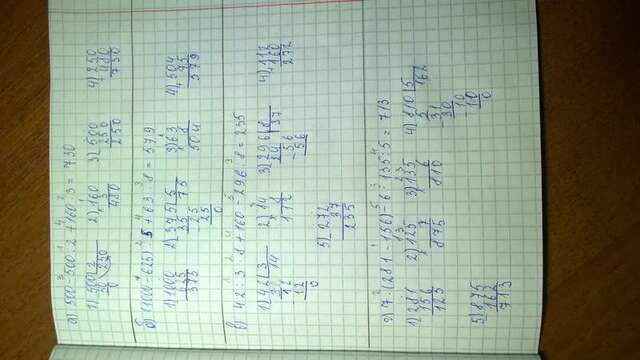 а) 500 - 500 : 2 + 160 · 3 = 730
1) 500 | 2 2) 160 3) 500 4) 250
50 250 3 250 + 480
0 480 250 730
б) (1000 - 625) : 5 + 63 · 8 = 579
1) 1000 2) 375 | 5 3) 63 4) 504
625 35 75 8 75
375 25 504 579
25
0
в) 42 : 3 · 8 + 160 - 296 : 8 = 235
1) 42 | 3 2) 14 3) 296 | 8 4) 112
3 14 8 24 37 + 160
12 112 - 56 272
12 56
0
5) 272
37
235
г) 7 · (281 - 156) - 6 · 135 : 5 = 713
1) 281 2) 125 3) 135 4) 810 | 5
156 7 6 5 162
125 875 810 - 31
30
10
10
0
5) 875
162
713